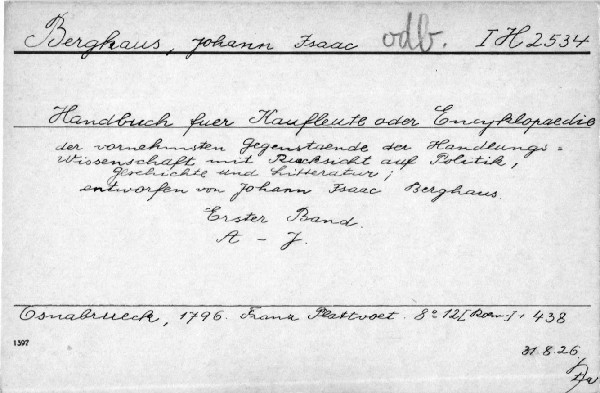 Berghaus, Johann Isaac odb. I H 2534
Handbuch fuer Kaufleute oder Encyklopaedie
der vornehmsten Gegenstaende der Handlungs=
Wissenschaft, mit Ruecksicht auf Politik,
Geschichte und Litteratur;
entworfen von Johann Isaac Berghaus.
Erster Band.
A - J.
Osnabrueck, 1796. Franz Plattvoet. 8° 12 [Roem.] + 438
1597
31.8.26.